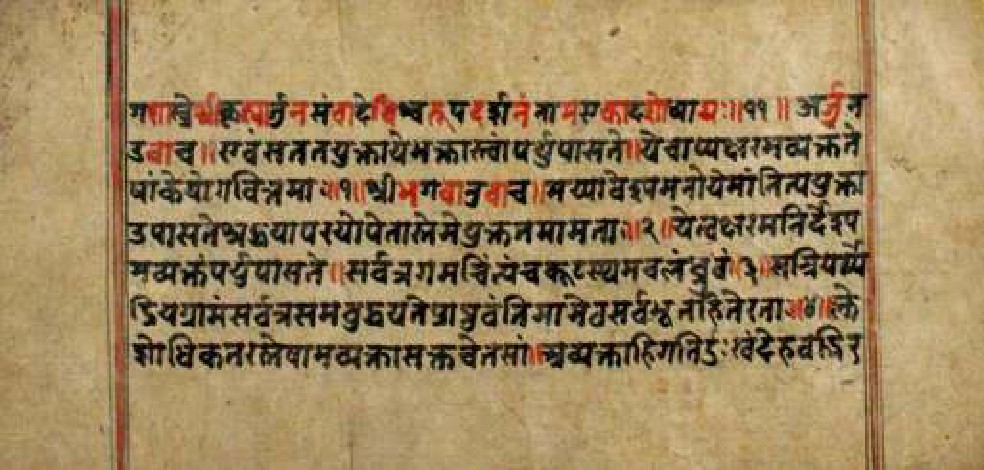 गशास्त्रेश्रीकृष्णार्जुनसंवादेविश्वरूपदर्शनंनामएकादशोध्यायः॥११॥अर्जुन
उवाच॥एवंसततयुक्तायेभक्तास्त्वांपर्युपासते॥येचाप्यक्षरमव्यक्तंते
षांकेयोगवित्तमाः॥१॥श्रीभगवानुवाच॥मय्यावेश्यमनोयेमांनित्ययुक्ता
उपासतेश्रद्धयापरयोपेतास्तेमेयुक्ततमामताः॥२॥येत्वक्षरमनिर्देश्य
मव्यक्तंपर्युपासते॥सर्वत्रगमचिंत्यंचकूटस्थमचलंध्रुवं॥३॥सन्नियम्यें
द्रियग्रामंसर्वत्रसमबुद्धयःतेप्राप्नुवंतिमामेवसर्वभूतहितेरताः॥४॥क्ले
शोधिकतरस्तेषामव्यक्तासक्तचेतसां॥अव्यक्ताहिगतिर्दुःखंदेहवद्भिर